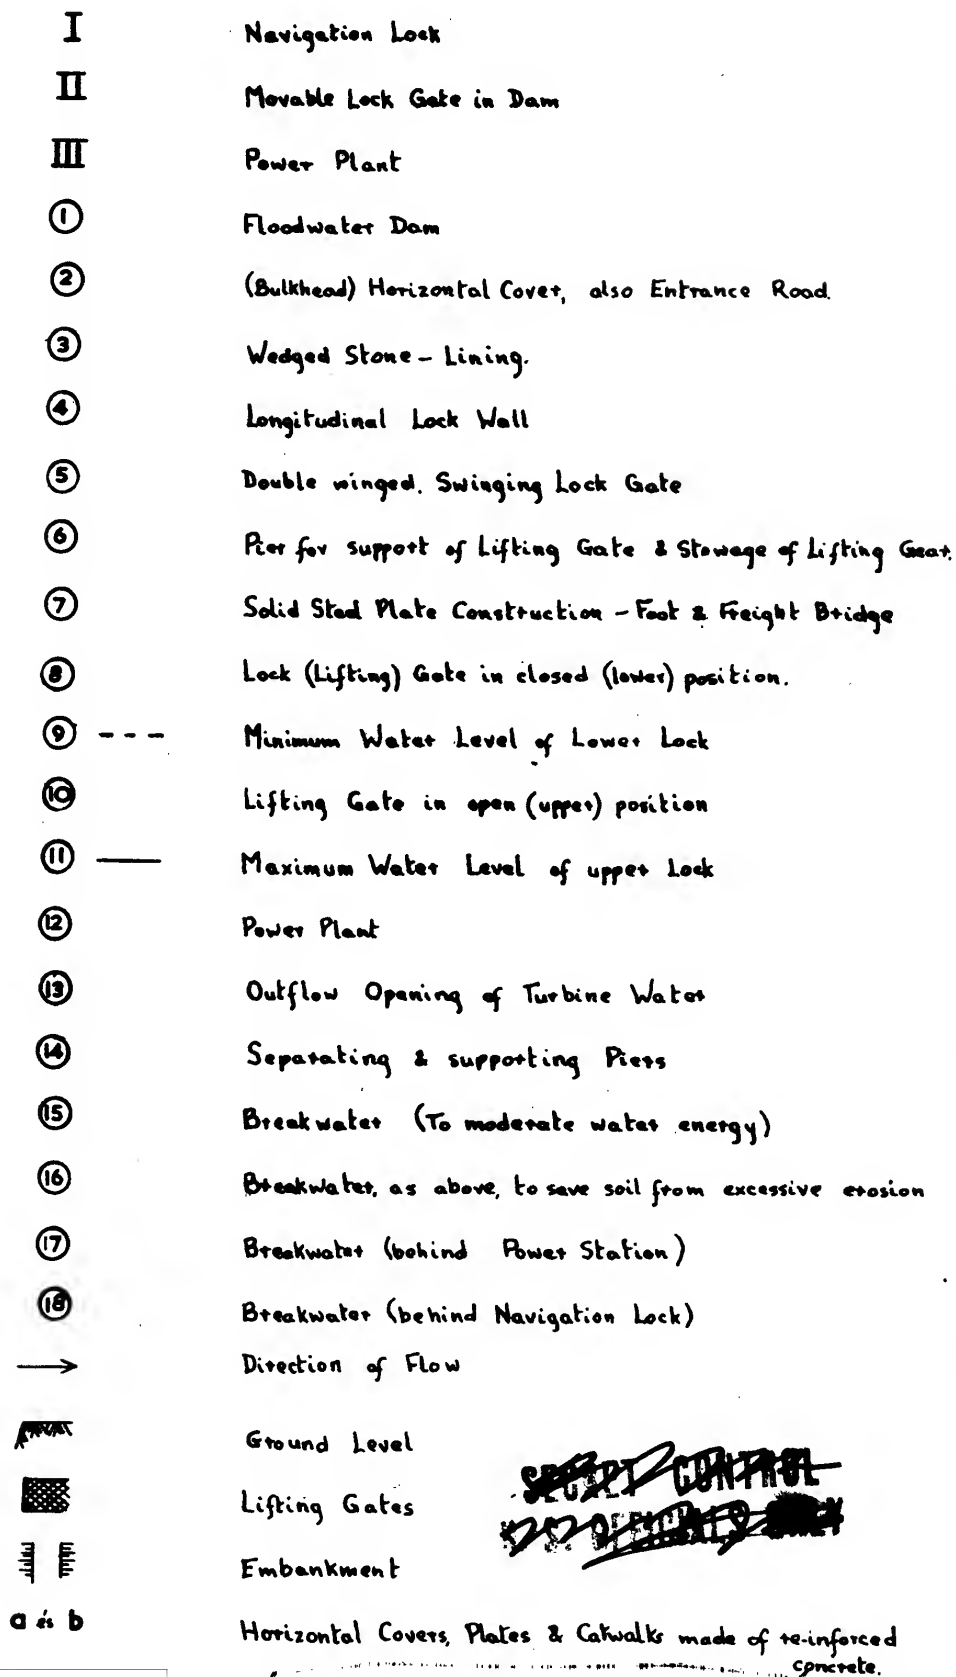 I Navigation Lock
II Movable Lock Gate in Dam
III Power Plant
1 Floodwater Dam
2 (Bulkhead) Horizontal Cover, also Entrance Road.
3 Wedged Stone – Lining.
4 Longitudinal Lock Wall
5 Double winged. Swinging Lock Gate
6 Pier for support of Lifting Gate & Stowage of Lifting Gear.
7 Solid Steel Plate Construction – Foot & Freight Bridge
8 Lock (Lifting) Gate in closed (lower) position.
9 --- Minimum Water Level of Lower Lock
10 Lifting Gate in open (upper) position
11 — Maximum Water Level of upper Lock
12 Power Plant
13 Outflow Opening of Turbine Water
14 Separating & supporting Piers
15 Breakwater (To moderate water energy)
16 Breakwater, as above, to save soil from excessive erosion
17 Breakwater (behind Power Station)
18 Breakwater (behind Navigation Lock)
→ Direction of Flow
Ground Level
SECRET CONTROL
Lifting Gates
U.S. OFFICIALS ONLY
Embankment
a és b Horizontal Covers, Plates & Catwalks made of re-inforced
concrete.